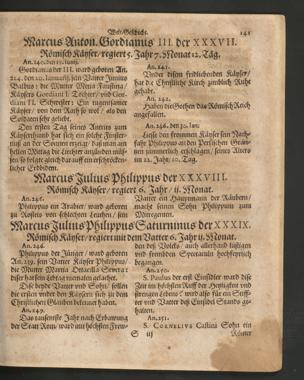 Welt-Geschicht. 141
Marcus Anton. Gordianus III. der XXXVII.
Römisch Käyser/ regiert 5. Jahr 7. Monat 12. Täg.
An. 240. den 11. Junij.
Gordianus der III. ward geboren An.
214. den 20. Januarij, sein Vatter Junius
Balbus: die Mutter Metia Faustina/
Käysers Gordiani I. Tochter/ und Gor-
diani II. Schwester: Ein tugensamer
Käyser/ von dem Raht so wol/ als den
Soldaten sehr geliebt.
Den ersten Tag seines Antrits zum
Käyserthumb hat sich ein solche Finster-
nuß an der Sonnen
hellen Mittag die Liechter anzünden müs-
sen/ so folgte gleich darauff ein erschröcken-
licher Erdbidem.
An. 241.
Under disem fridliebenden Käyser/
hat die Christliche Kirch zimblich Ruhe
gehabt.
An. 242.
Haben die Gothen das Römisch Reich
angefallen.
An. 246. den 30. Jan:
Liesse den frommen Käyser sein Nach-
fahr Philippus an den Persischen Grän-
tzen jämmerlich erschlagen/ seines Alters
im 22. Jahr/ 10. Tag.
Marcus Julius Philippus der XXXVIII.
Römisch Käyser/ regiert 6. Jahr/ 11. Monat.
An. 246.
Philippus ein Arabier/ ward geboren
zu Bostris von schlechten Leuthen/ sein
Vatter ein Hauptmann der Räuber/
macht seinen Sohn Philippum zum
Mitregenten.
Marcus Julius Philippus Saturninus der XXXIX.
Römisch Käyser/ regiert mit dem Vatter 5. Jahr 11. Monat.
An. 246.
Philippus der Jünger/ ward geboren
An. 239. sein Vatter Käyser Philippus/
die Mutter Marcia Otacilla Severa:
Diser hat sein Lebtag niemalen gelachet.
Dise beyde Vatter und Sohn/ sollen
die ersten under den Käysern sich zu dem
Christlichen Glauben bekennet haben.
An. 249.
Das tausentste Jahr nach Erbawung
der Statt Rom/ ward mit höchsten Frew-
den deß Volcks/ auch allerhand lustigen
und frembden Spectaculn hochfeyrlich
begangen.
An. 250.
S. Paulus der erst Einsidler ward dise
Zeit im höchsten Ruff der Heyligkeit und
strengen Lebens/ wird also für ein Stiff-
ter und Vatter deß Einsidl Stands ge-
halten.
An. 251.
S. CORNELIUS Castini Sohn ein
S iij Römer